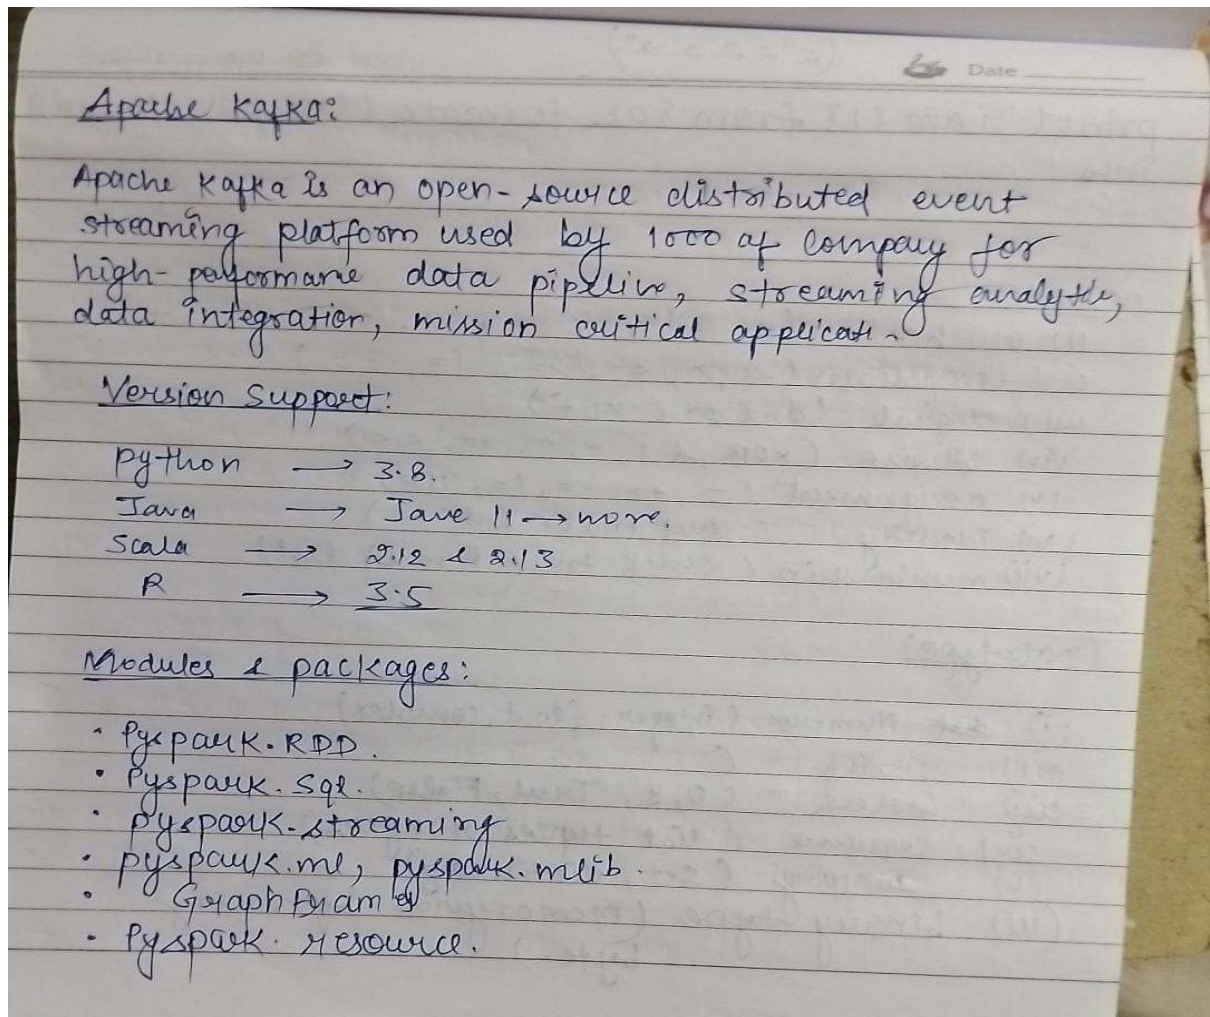 Date
Apache Kafka:
Apache Kafka is an open-source distributed event
streaming platform used by 1000 of Company for
high-performane data pipeline, streaming analytic,
data integration, mission critical applicati.
Version Support:
Python → 3.8.
Java → Jave 11 → more.
Scala → 2.12 & 2.13
R → 3.5
Modules & packages:
· Pyspark.RDD.
· Pyspark.Sql.
· Pyspark.streaming
· pyspark.ml, pyspark.mlib.
· GraphFrames
· Pyspark.resource.